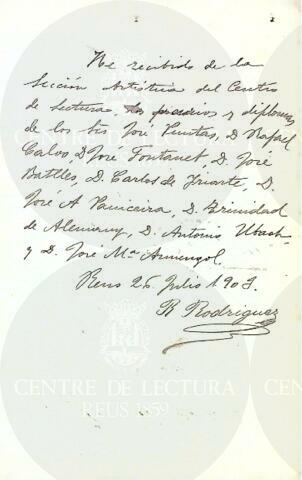 He recibido de la
Sección Artística del Centro
de Lectura, los premios y diplomas
de los Sres José Puntas, D. Rafael
Calvo, D José Fontanet, D. José
Batlles, D. Carlos de Iriarte, D.
José A, D. Trinidad
de Alemany, D. Antonio Ubach
y D. José Mª Armengol.
Reus 26 Julio 1903.
R Rodriguez
CENTRE DE LECTURA
REUS 1859